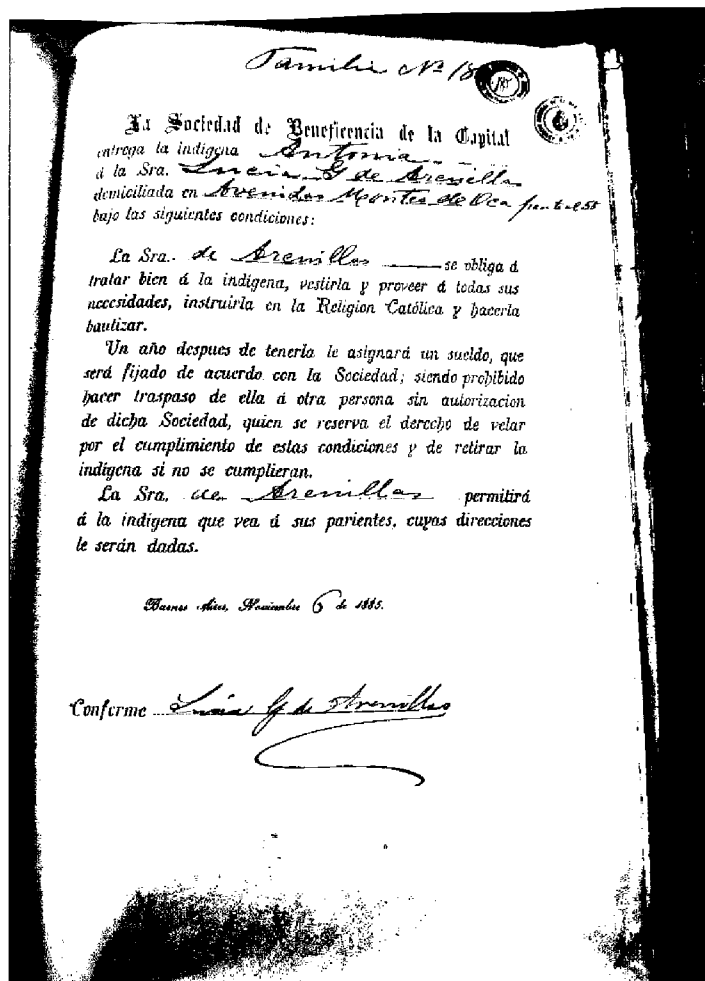 Familia Nº 18
187
La Sociedad de Beneficencia de la Capital
entrega la indígena Antonia
á la Sra. Lucia G de Arenillas
domiciliada en Avenida Montes de Oca frente al 55
bajo las siguientes condiciones:
La Sra. de Arenillas se obliga á
tratar bien á la indígena, vestirla y proveer á todas sus
necesidades, instruirla en la Religion Católica y hacerla
bautizar.
Un año despues de tenerla le asignará un sueldo, que
será fijado de acuerdo con la Sociedad; siendo prohibido
hacer traspaso de ella á otra persona sin autorizacion
de dicha Sociedad, quien se reserva el derecho de velar
por el cumplimiento de estas condiciones y de retirar la
indígena si no se cumplieran.
La Sra. de Arenillas permitirá
á la indígena que vea á sus parientes, cuyas direcciones
le serán dadas.
Buenos Aires, Noviembre 6 de 1885.
Conforme Lucia G de Arenillas